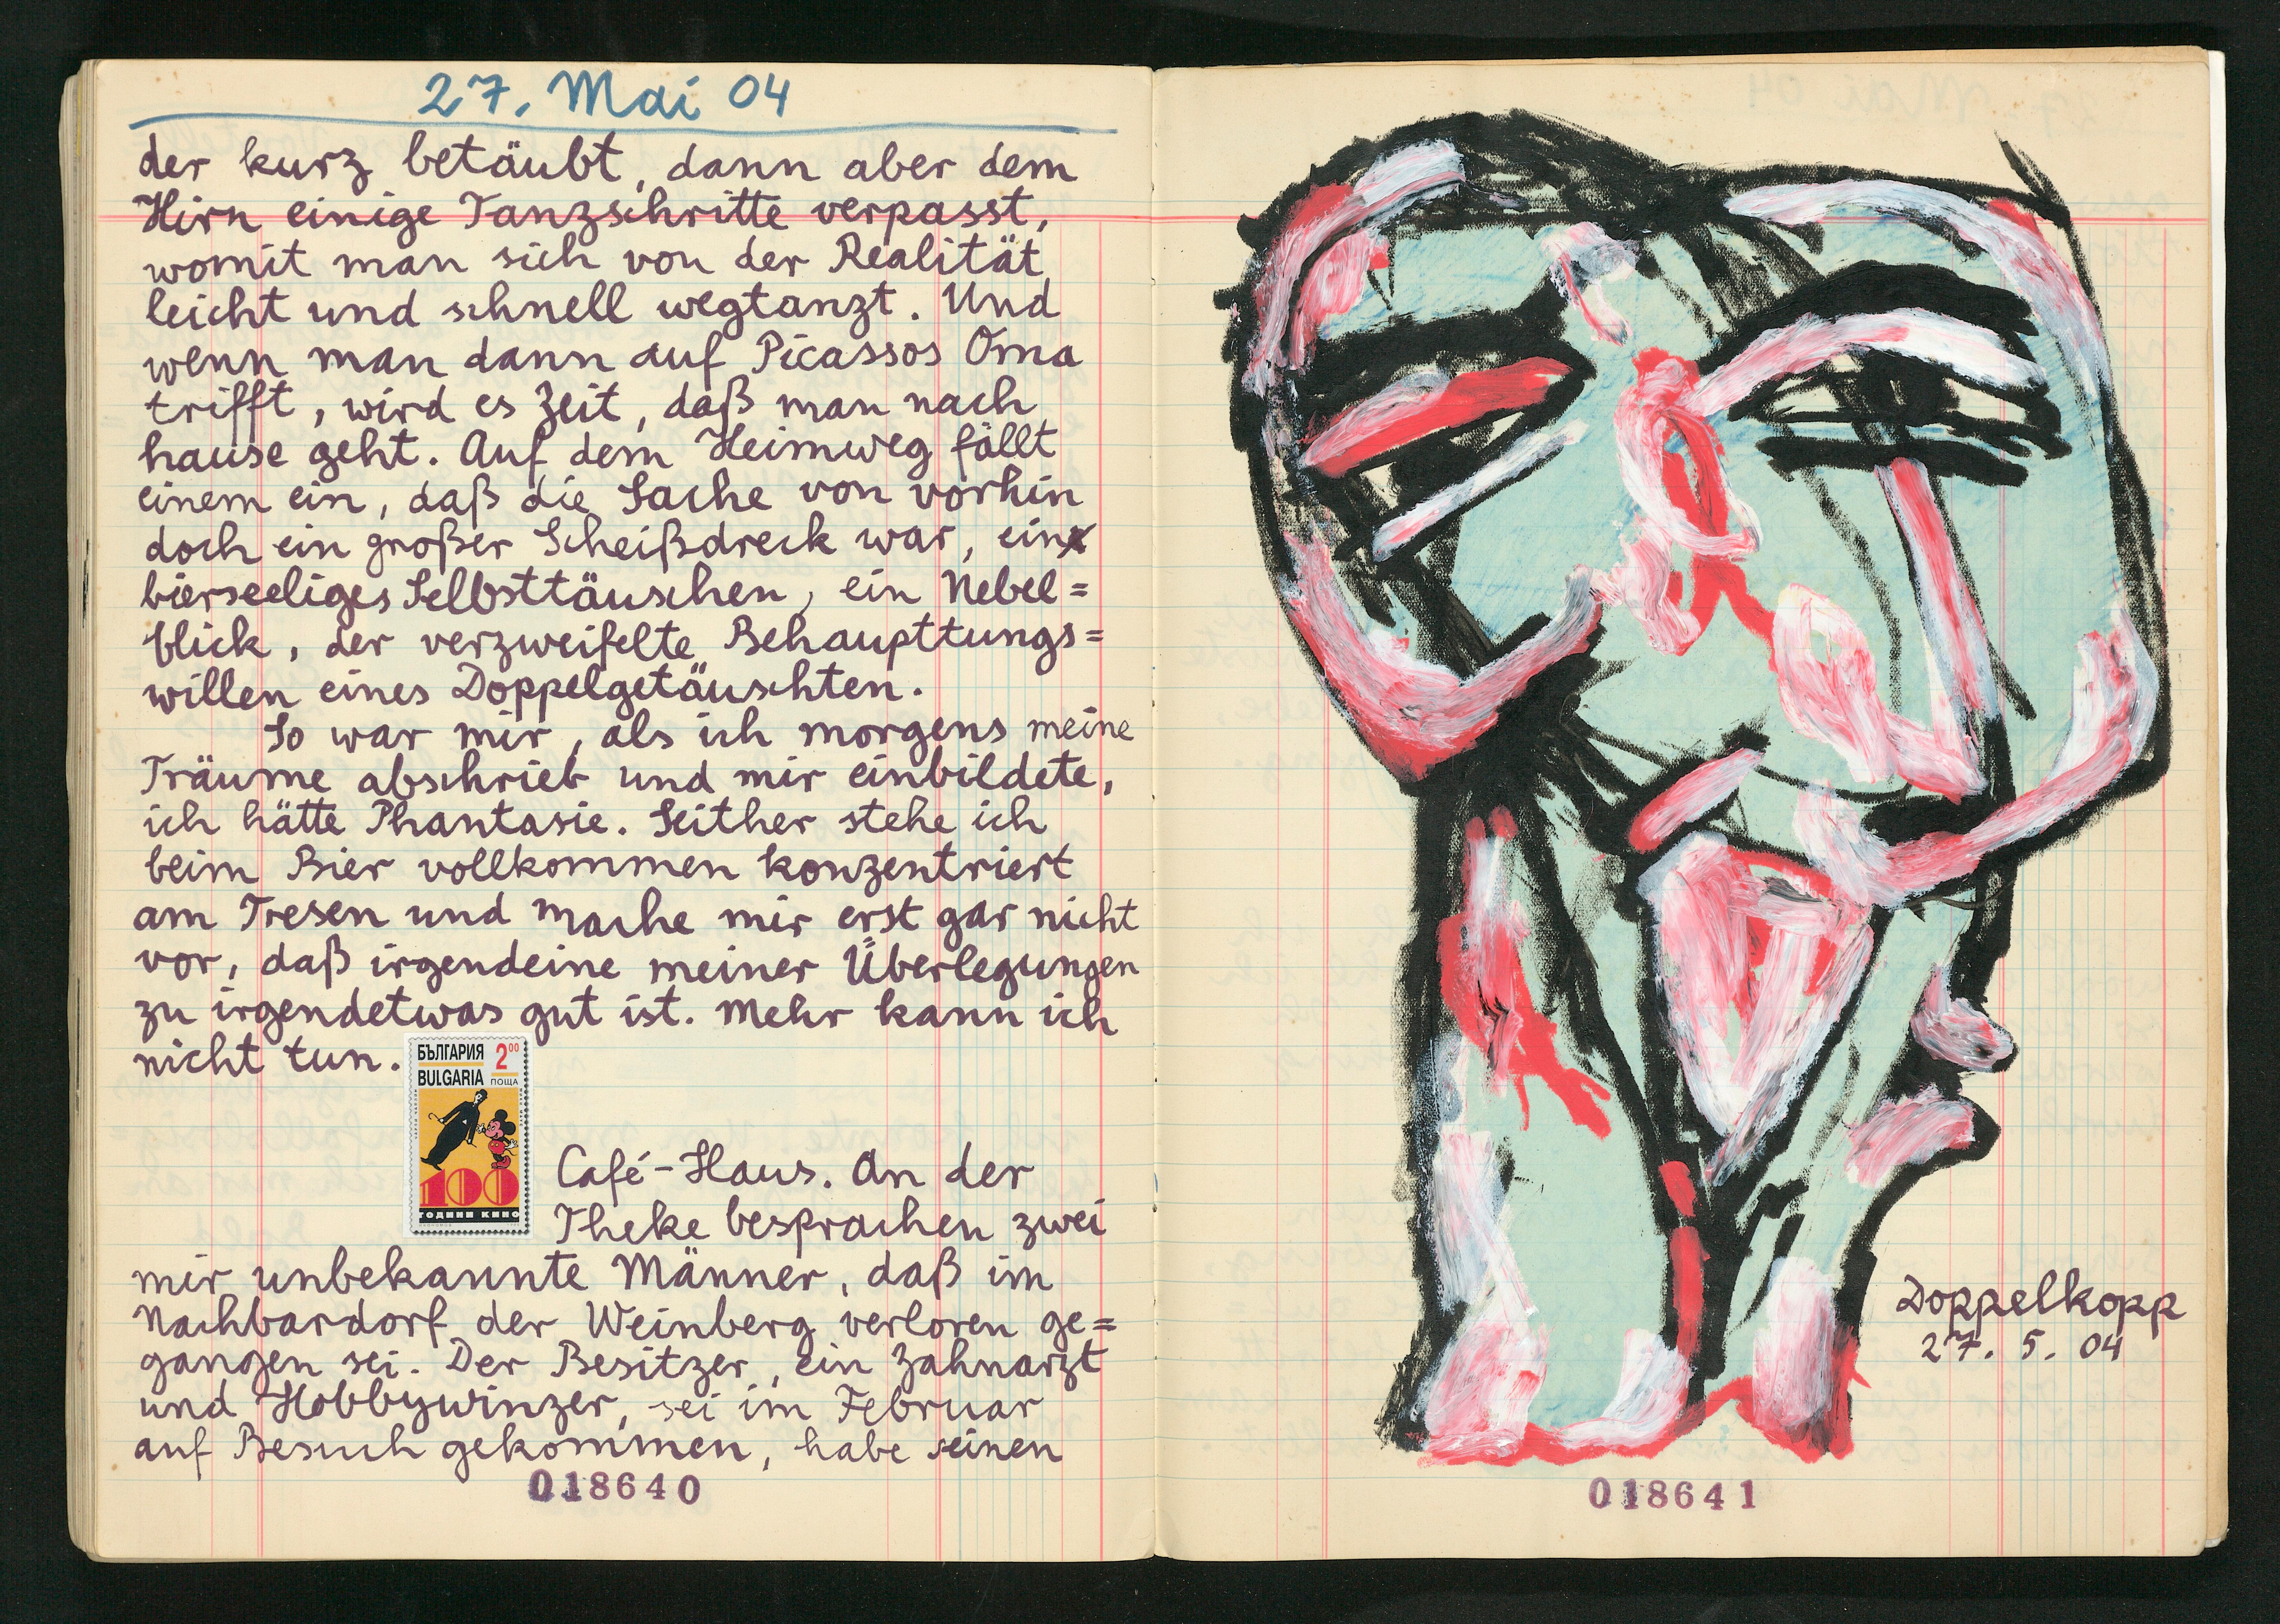 27. Mai 04
der kurz betäubt, dann aber dem
Hirn einige Tanzschritte verpasst,
womit man sich von der Realität
leicht und schnell wegtanzt. Und
wenn man dann auf Picassos Oma
trifft, wird es Zeit, daß man nach
hause geht. Auf dem Heimweg fällt
einem ein, daß die Sache von vorhin
doch ein großer Scheißdreck war, ein
bierseeliges Selbsttäuschen, ein Nebel=
blick, der verzweifelte Behaupttungs=
willen eines Doppelgetäuschten.
So war mir, als ich morgens meine
Träume abschrieb und mir einbildete,
ich hätte Phantasie. Seither stehe ich
beim Bier vollkommen konzentriert
am Tresen und mache mir erst gar nicht
vor, daß irgendeine meiner Überlegungen
zu irgendetwas gut ist. Mehr kann ich
nicht tun.
БЪЛГАРИЯ 2⁰⁰
BULGARIA ПОЩА
100
ГОДИНИ КИНО
Café-Haus. An der
Theke besprachen zwei
mir unbekannte Männer, daß im
Nachbardorf der Weinberg verloren ge=
gangen sei. Der Besitzer, ein Zahnarzt
und Hobbywinzer, sei im Februar
auf Besuch gekommen, habe seinen
018640
Doppelkopp
27. 5. 04
018641